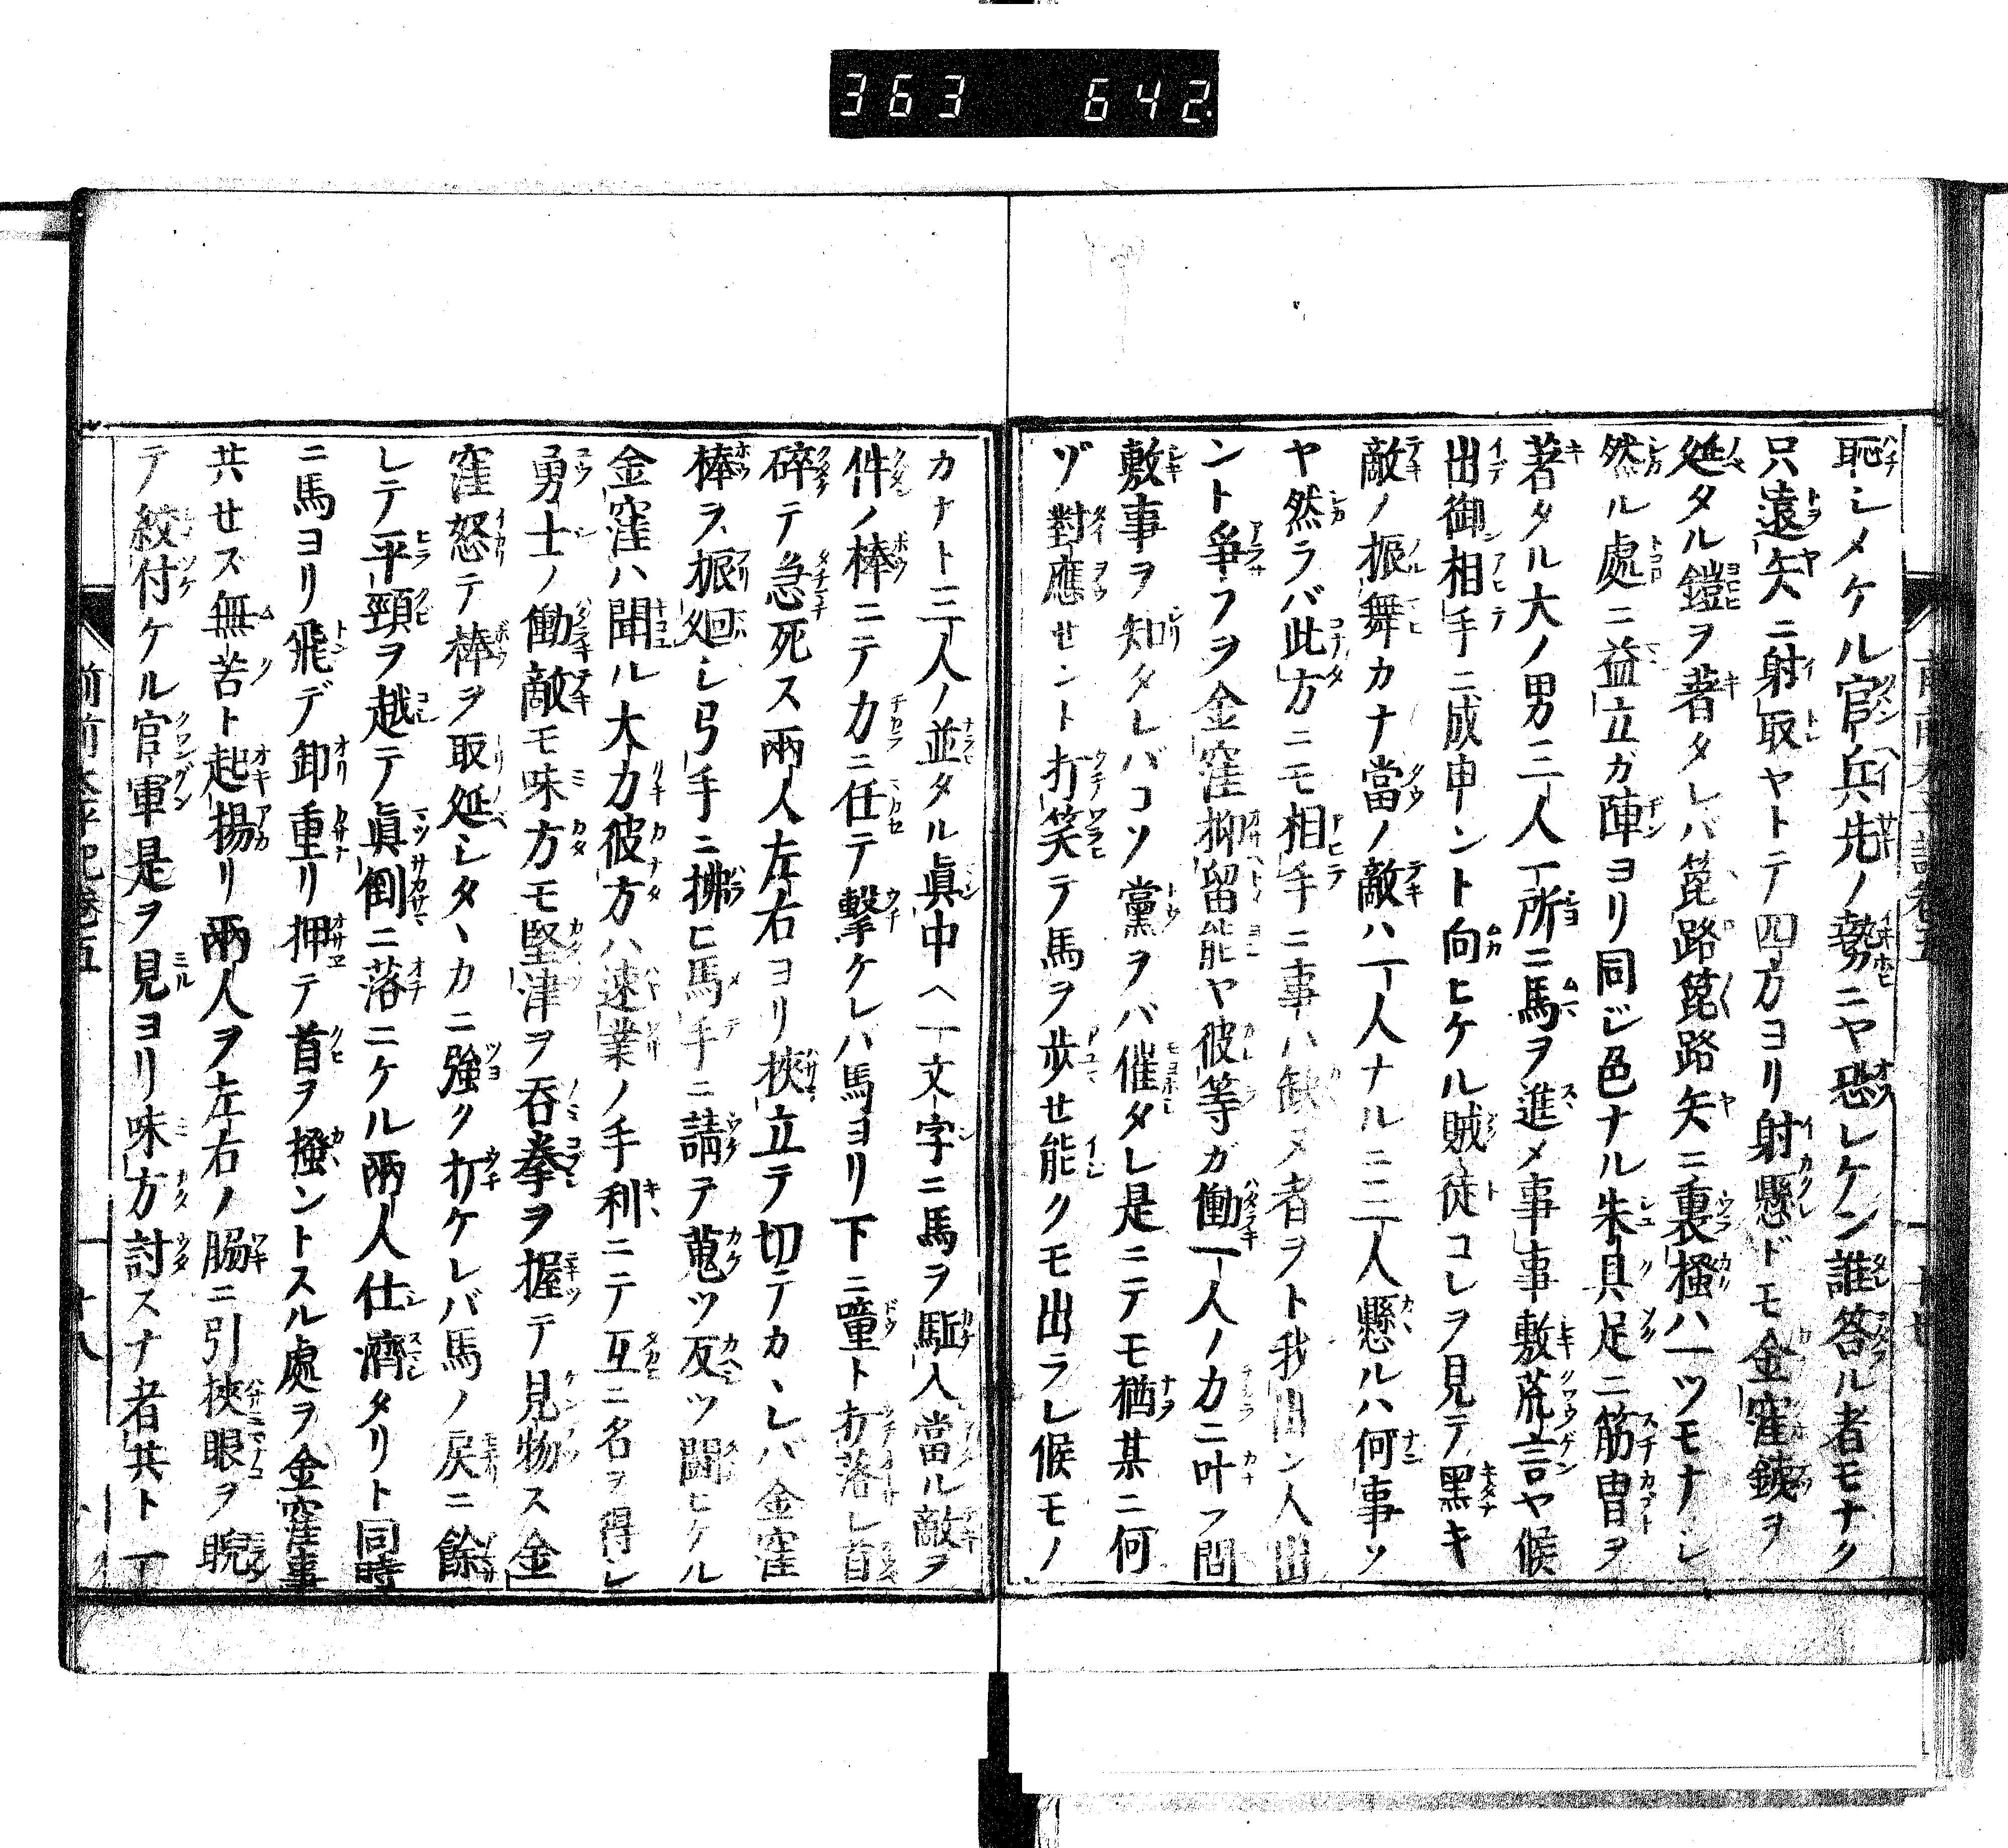 363 642
恥シメケル官兵先ノ勢ニヤ恐レケン誰答ル者モナク
只遠矢ニ射取ヤトテ四方ヨリ射懸ドモ金窪鉄ヲ
延タル鎧ヲ著タレバ箆路箆路矢ニ裏掻ハ一ツモナシ
然ル處ニ益立ガ陣ヨリ同ジ色ナル朱具足ニ筋冑ヲ
著タル大ノ男三人一所ニ馬ヲ進メ事事敷荒言ヤ候
出御相手ニ成申ント向ヒケル賊徒コレヲ見テ黑キ
敵ノ振舞カナ當ノ敵ハ一人ナルニ三人懸ルハ何事ソ
ヤ然ラバ此方ニモ相手ニ事ハ缺ヌ者ヲト我出ン人出
ント爭フヲ金窪抑留能ヤ彼等ガ働一人ノカニ叶フ間
敷事ヲ知タレバコソ黨ヲバ催タレ是ニテモ猶某ニ何
ゾ對應せント打笑テ馬ヲ歩せ能クモ出ラレ候モノ
カナト三人ノ並タル眞中ヘ一文字ニ馬ヲ駈入當ル敵ヲ
件ノ棒ニテ力ニ任テ撃ケレバ馬ヨリ下ニ噇ト打落レ首
碎テ急死ス兩人左右ヨリ挾立テ切テカヽレバ金窪
棒ヲ振廻シ弓手ニ拂ヒ馬手ニ請テ蒐ツ反ツ闘ヒケル
金窪ハ聞ル大力彼方ハ速業ノ手利ニテ互ニ名ヲ得シ
勇士ノ働敵モ味方モ堅津ヲ呑拳ヲ握テ見物ス金
窪怒テ棒ヲ取延シタヽカニ強ク打ケレバ馬ノ戻ニ餘
シテ平頸ヲ越テ眞倒ニ落ニケル兩人仕濟タリト同時
ニ馬ヨリ飛デ卸重リ押テ首ヲ掻ントスル處ヲ金窪事
共せズ無苦ト起揚リ兩人ヲ左右ノ脇ニ引挾眼ヲ睨
テ絞付ケル官軍是ヲ見ヨリ味方討スナ者共ト一
前前太平記卷五
十八